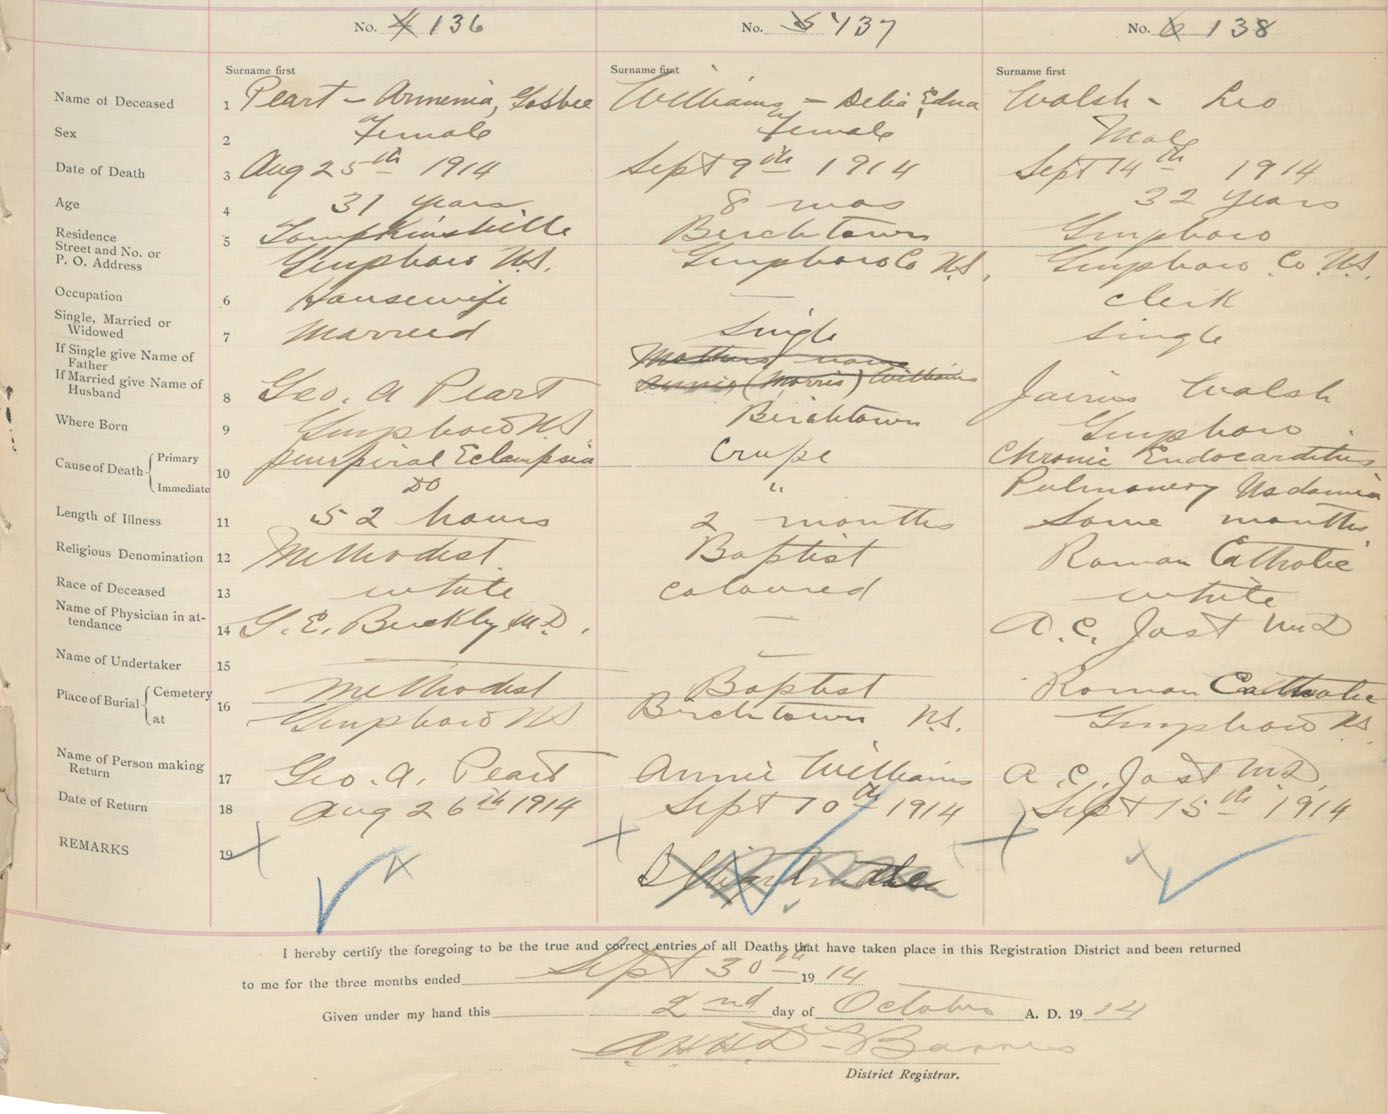 No. 4 136 No. 5 137 No. 6 138
Surname first Surname first Surname first
Name of Deceased 1 Peart - Armenia, Gosbee Williams - Delia Edna Walsh - Leo
Sex 2 Female Female Male
Date of Death 3 Aug 25th 1914 Sept 9th 1914 Sept 14th 1914
Age 4 31 years 8 mos 32 years
Residence
Street and No. or
P. O. Address
5 Tompkinsville Birchtown Guysboro
Guysboro N.S. Guysboro Co N.S. Guysboro Co. N.S.
Occupation 6 Housewife — clerk
Single, Married or
Widowed
7 Married Single Single
If Single give Name of
Father
If Married give Name of
Husband
Mothers name
Annie (Morris) Williams
8 Geo. A Peart Jairus Walsh
Where Born 9 Guysboro N.S Birchtown Guysboro
Cause of Death Primary 10 Puerperal Eclampsia Crupe Chronic Endocarditis
Immediate Do " Pulmonary
Length of Illness 11 52 hours 2 months Some months
Religious Denomination 12 Methodist Baptist Roman Catholic
Race of Deceased 13 white coloured white
Name of Physician in at-
tendance
14 G. E. Buckley M.D. — A. C. Jost M D
Name of Undertaker 15 — —
Place of Burial Cemetery 16 Methodist Baptist Roman Catholic
at Guysboro N S Birchtown N.S. Guysboro N.S.
Name of Person making
Return
17 Geo. A. Peart Annie Williams A. C. Jost M.D.
Date of Return 18 Aug 26th 1914 Sept 10th 1914 Sept 15th 1914
REMARKS 19
I hereby certify the foregoing to be the true and correct entries of all Deaths that have taken place in this Registration District and been returned
to me for the three months ended Sept 30th 1914
Given under my hand this 2nd day of October A. D. 1914
District Registrar.